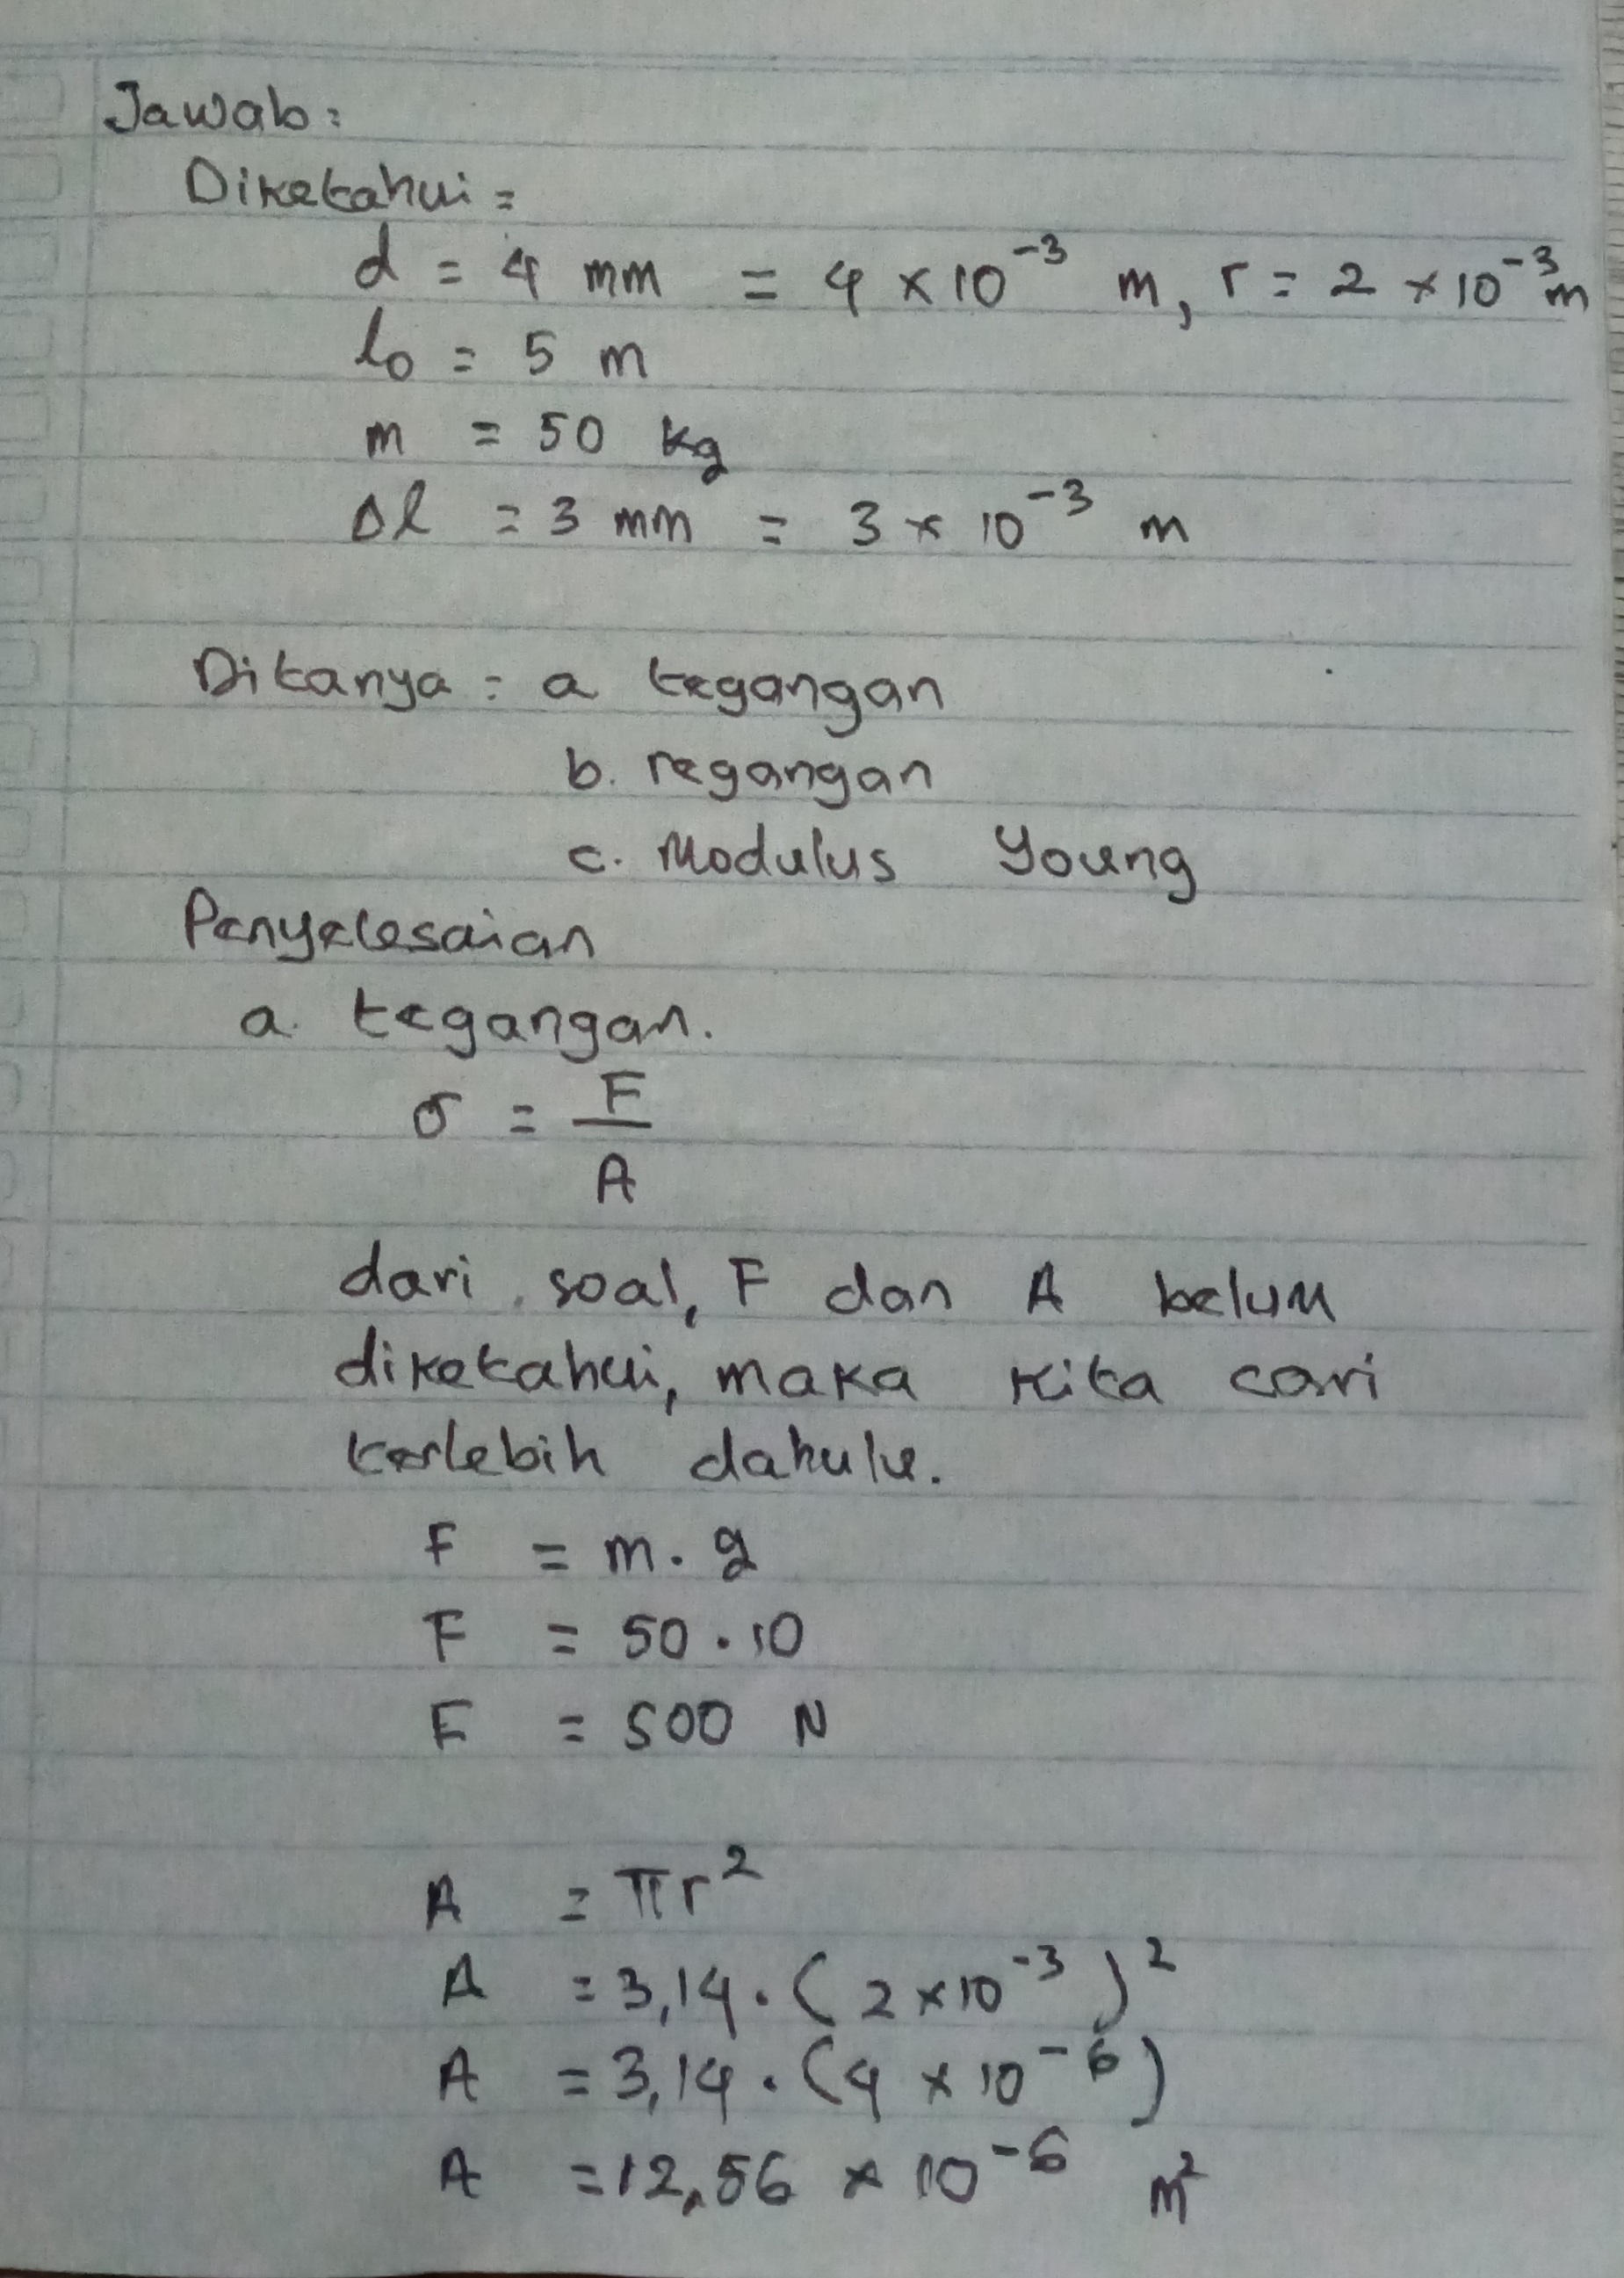 Jawab:
Diketahui =
d = 4 mm = 4 × 10⁻³ m, r = 2 × 10⁻³ m
l₀ = 5 m
m = 50 kg
Δl = 3 mm = 3 × 10⁻³ m
Ditanya : a tegangan
b. regangan
c. Modulus Young
Penyelesaian
a. tegangan.
σ = F
A
dari soal, F dan A belum
diketahui, maka kita cari
terlebih dahulu.
F = m . g
F = 50 . 10
F = 500 N
A = πr²
A = 3,14 . (2 × 10⁻³)²
A = 3,14 . (4 × 10⁻⁶)
A = 12,56 × 10⁻⁶ m²